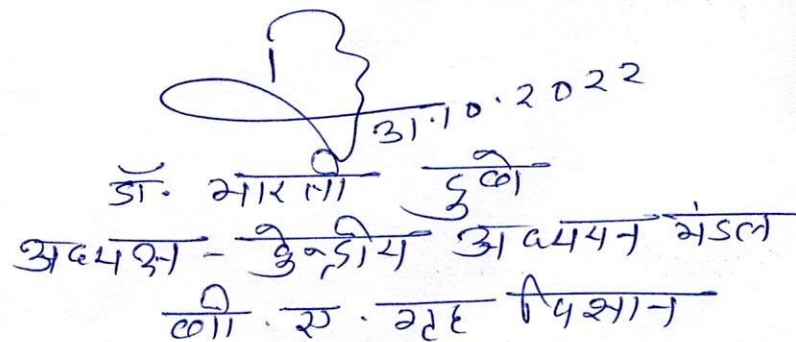 31.10.2022
डॉ. भारती दुबे
अध्यक्ष - केन्द्रीय अध्ययन मंडल
बी.ए. गृह विज्ञान